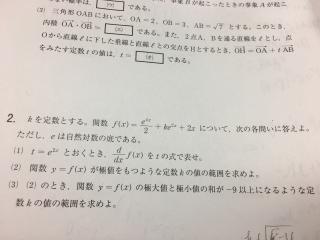 である。
(2) 三角形OABにおいて、OA=2、OB=3、AB=√7 とする。このとき、
内積 OA・OB= である。また、2点A、Bを通る直線をℓとし、点
Oから直線ℓに下した垂線と直線ℓとの交点をHとするとき、OH=OA+tAB
をみたす定数tの値は、t= である。
2. kを定数とする。関数 f(x)=e^{4x}/2+ke^{2x}+2x について、次の各問いに答えよ。
ただし、eは自然対数の底である。
(1) t=e^{2x} とおくとき、d/dx f(x) をtの式で表せ。
(2) 関数 y=f(x) が極値をもつような定数kの値の範囲を求めよ。
(3) (2)のとき、関数 y=f(x) の極大値と極小値の和が-9以上になるような定
数kの値の範囲を求めよ。